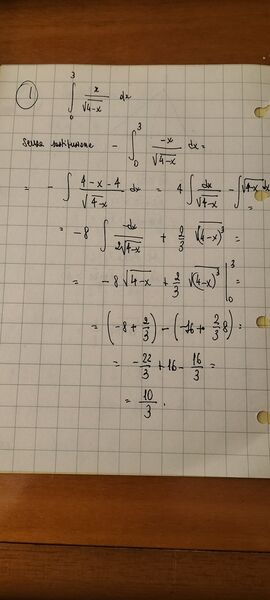 1
∫₀³ x/√(4-x) dx
Senza sostituzione - ∫₀³ -x/√(4-x) dx =
= - ∫ (4-x-4)/√(4-x) dx = 4 ∫ dx/√(4-x) - ∫ √(4-x) dx =
= -8 ∫ -dx/(2√(4-x)) + 2/3 √(4-x)³ =
= -8 √(4-x) + 2/3 √(4-x)³ |₀³ =
= (-8 + 2/3) - (-16 + 2/3 8) =
= -22/3 + 16 - 16/3 =
= 10/3 .